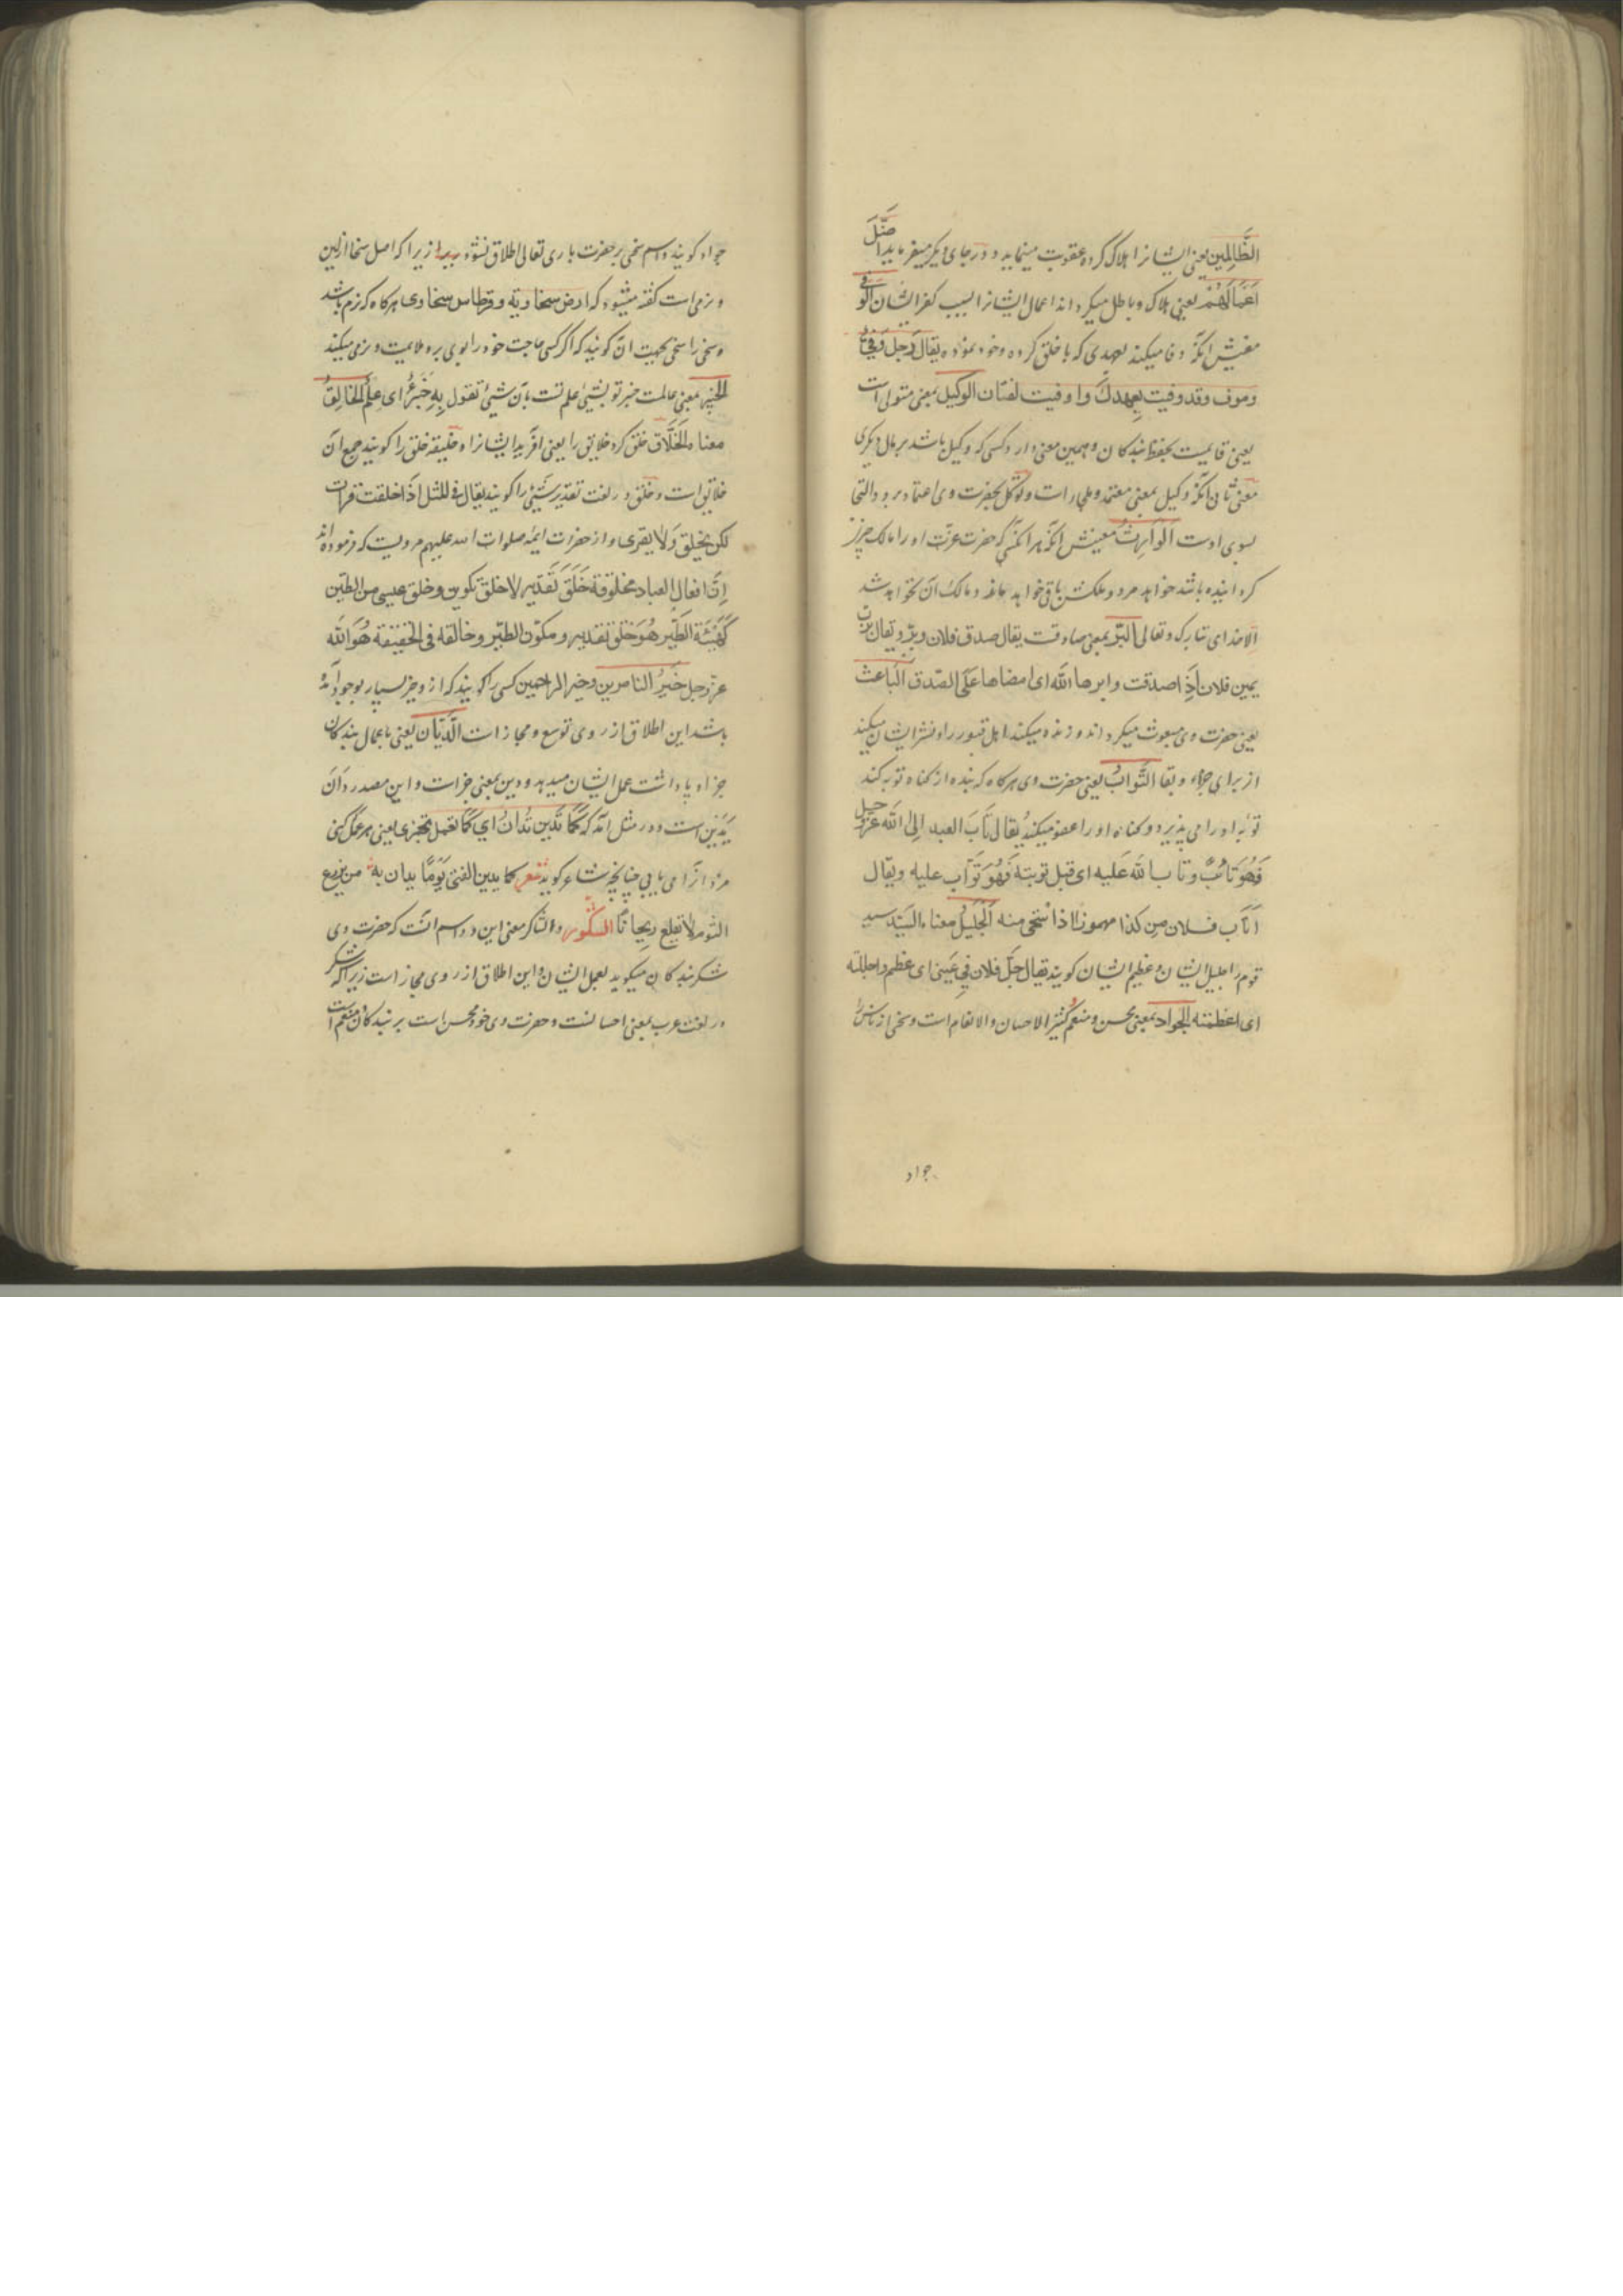 الظَّالِمِين یعنی ایشانرا هلاک کرده عقوبت مینماید و در جای دیکر میفرماید اضَلَّ
اَعْمَالَهُمْ یعنی هلاک و باطل میکرداند اعمال ایشانرا بسبب کفر ایشان الوفی
معنیش آنکه وفا میکند بعهدی که با خلق کرده و خود نموده یقال رجل وفی
وموف وقد وفیت بعهدك واوفیت لغتان الوکیل بمعنی متولی است
یعنی قایمست بحفظ بندکان و همین معنی دارد کسی که وکیل باشد بر مال دیکری
معنی ثانی آنکه وکیل بمعنی معتمد و ملجا است و توکل بحضرت وی اعتماد بر و والتجا
بسوی اوست الوارث معنیش آنکه هر آنکسی که حضرت عزت او را مالک چیز
کردانیده باشد خواهد مرد و ملکش باقی خواهد ماند و مالک آن نخواهد شد
الا خدای تبارک و تعالی البَرّ بمعنی صادقست یقال صدق فلان وبرّ ویقال برت
یمین فلان اذا صدقت وابرها الله ای امضاها علی الصدق الباعث
یعنی حضرت وی مبعوث میکرداند و زنده میکند اهل قبور را و نشر ایشان میکند
از برای جزاء و بقا التَّوّابُ یعنی حضرت وی هرکاه که بنده از کناه توبه کند
توبه او را می پذیرد و کناه او را عفو میکند یقال تَابَ العبد اِلی الله عزوجل
فَهُوَ تَائبٌ وتاب الله علیه ای قبل توبته فَهُوَ تَوّاب علیه ویقال
اتاب فلان من کذا مهموزا اذا استحی منه اَلجَلیلُ معناه السَیّد سید
قوم را جلیل ایشان و عظیم ایشان کویند یقال جلّ فلان فی عَینی ای عظم واجللته
ای اعظمته الجواد بمعنی محسن و منعم کثیر الاحسان والانعام است و سخی از ناس را
جواد
جواد کویند و اسم سخی بر حضرت باری تعالی اطلاق نشود زیرا که اصل سخا از لین
و نرمی است کفته میشود که ارض سخاویة وقرطاس سخاوی هرکاه که نرم باشد
و سخی را سخی بجهت آن کویند که اکر کسی حاجت خود را بوی برد ملایمت و نرمی میکند
الخبیر بمعنی عالمست خبر تو بشیئ علم تست بآن شیئ تقول بِه خَبَرٌ ای عِلمٌ الخَالِقُ
معناه الخَلّاق خلق کرد خلایق را یعنی آفرید ایشانرا و خلیقه خلق را کویند جمع آن
خلایق است و خلق در لغت تقدیر شیئ را کویند یقال فی المثل
لکن یخلق وَلا یفری و از حضرات ایمه صلوات الله علیهم مرویست که فرموده‌اند
اِنّ افعال العباد مخلوقة خَلَقَ تَقدیر لا خلق تکوین وخلق عیسی من الطین
کَهَیْئَةِ الطَّیر هُوَ خلق تقدیر ومکوّن الطیر وخالقه فی الحقیقة هُوَ الله
عزوجل خَیرُ الناصرین وخیر الراحمین کسی را کویند که از و خیر بسیار بوجود آمده
باشد این اطلاق از روی توسع و مجاز است الدَّیّان یعنی باعمال بندکان
جزا و پاداشت عمل ایشان میدهد و دین بمعنی جزا است و این مصدر دَانَ
یَدین است و در مثل آمد که کَمَا تَدین تُدانُ ای کَمَا تعمل تجزی یعنی هر عمل کنی
مزد آنرا می یابی چنانچه شاعر کوید شعر کما یدین الفتی یَوْمًا یدان به من یزرع
الثوم لا یقلع ریحانًا الشکور والشاکر معنی این دو اسم آنست که حضرت وی
شکر بندکان میکوید بعمل ایشان و این اطلاق از روی مجاز است زیرا که شکر
در لغت عرب بمعنی احسانست و حضرت وی خود محسن است بر بندکان منعم است